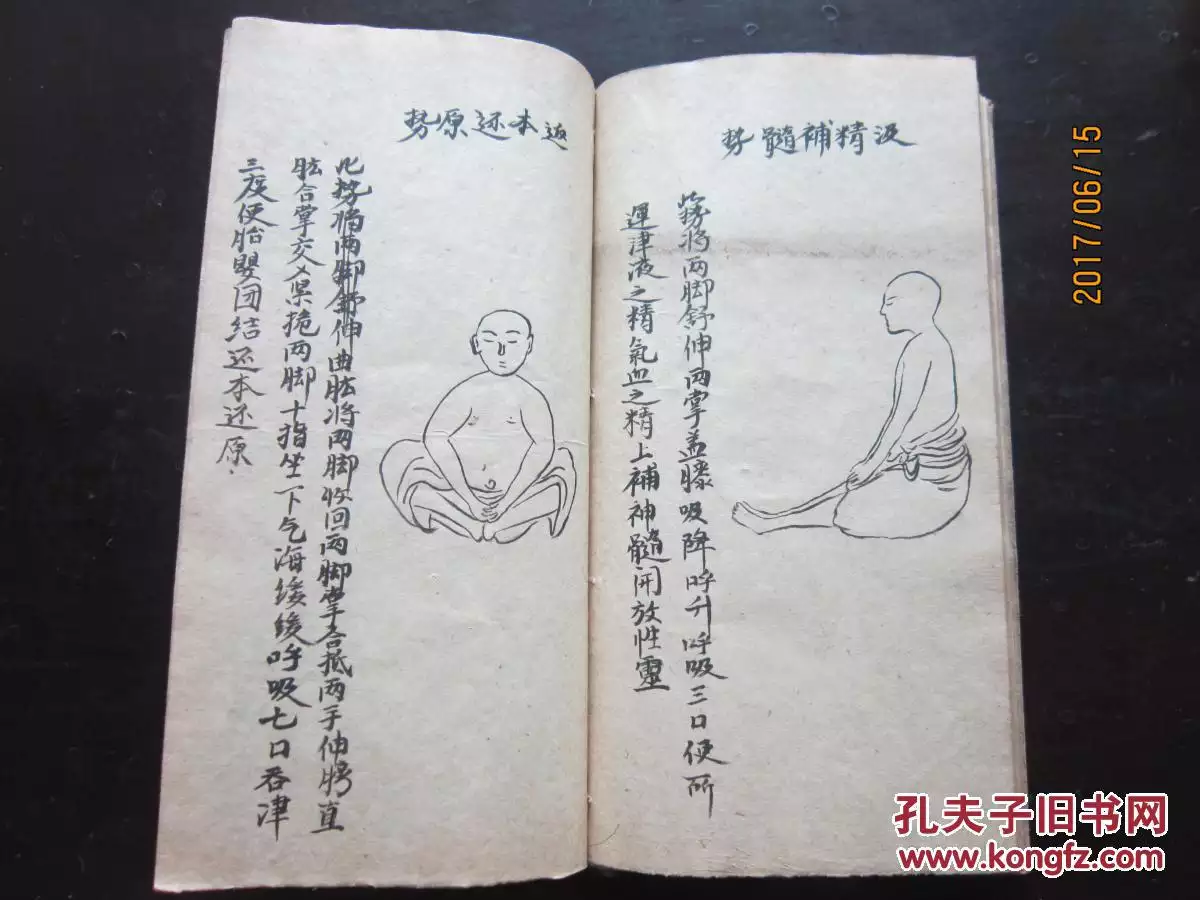 汲精補髓势
此势将两脚舒伸两掌盖膝吸降呼升呼吸三口便所
運津液之精氣血之精上補神髓開放性靈
返本还原势
此势将两脚舒伸曲肱将两脚收回两脚掌合抵两手伸膊直
肱合掌交叉果掩两脚十指坐下气海缓缓呼吸七口吞津
三度使胎嬰团结还本还原
2017/06/15
孔夫子旧书网
www.kongfz.com